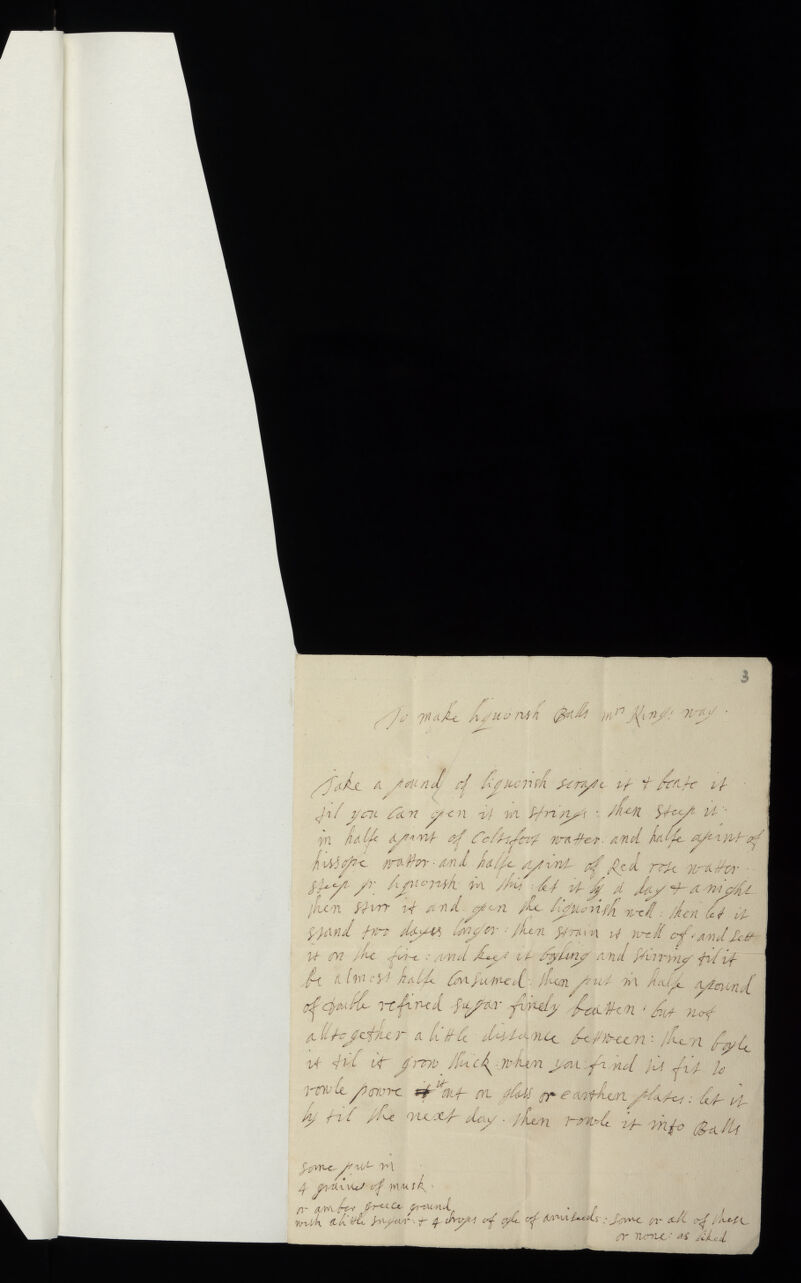 3
To make liquorish Balls mrs Kings way.
Take a pound of liquorish scrape it & beate it
til you Can open it in strings: then steep it
in halfe a pint of Coltsfoot watter. and halfe a pint of
hissope watter: and halfe a pint of Red rose watter
steep yr liquorish in this: let it ly a day & a night
then stirr it and open the liquorish well: then let it
stand two dayes longer: then strain it well of. and sett
it on the fire: and keep it boyling and stirring til it
be almost halfe Consumed: then put in halfe a pound
of double refined sugar finely beatten: but not
alltogether a little distance between: then boyle
it til it grow thick when you find tis fit to
rowle powre it out on glass or earthen plates: let it
ly til the next day. then rowle it into Balls
some put in
4 graines of musk.
or amber greece ground
with a little sugar. & 4 drops of oyle of aniseeds: some or all of these
or none: as liked